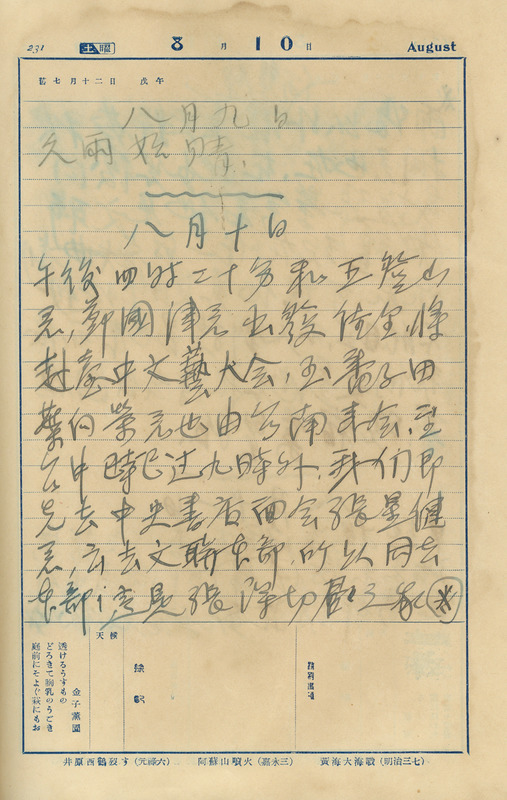 231 土曜 8月10日 August
舊七月十二日 戊午
八月九日
久雨始晴.
八月十日
午後四時二十分和王登山
君,鄭國津君出發佳里,將
赴臺中文藝大会,至番子田
葉向榮君也由台南来会,至
台中時已过九時外,我们即
先去中央書店面会張星健
君,云去文聯本部,所以同去
本部;遇見張深切
天候
金子薫園
透けるうすもの
どろきて胸乳のうごき
庭前にそよぐ萩にもお
井原西鶴歿す(元祿六) 阿蘇山噴火(嘉永三) 黃海大海戰(明治三七)